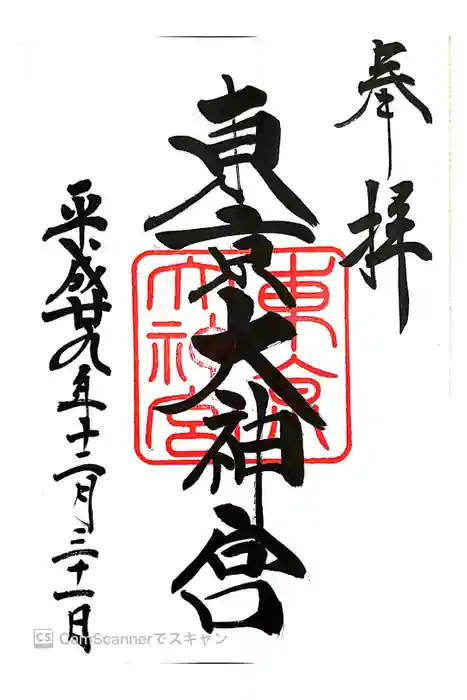 奉拝
東京大神宮
東京
大神宮
平成廿九年十二月三十一日
CS CamScannerでスキャン